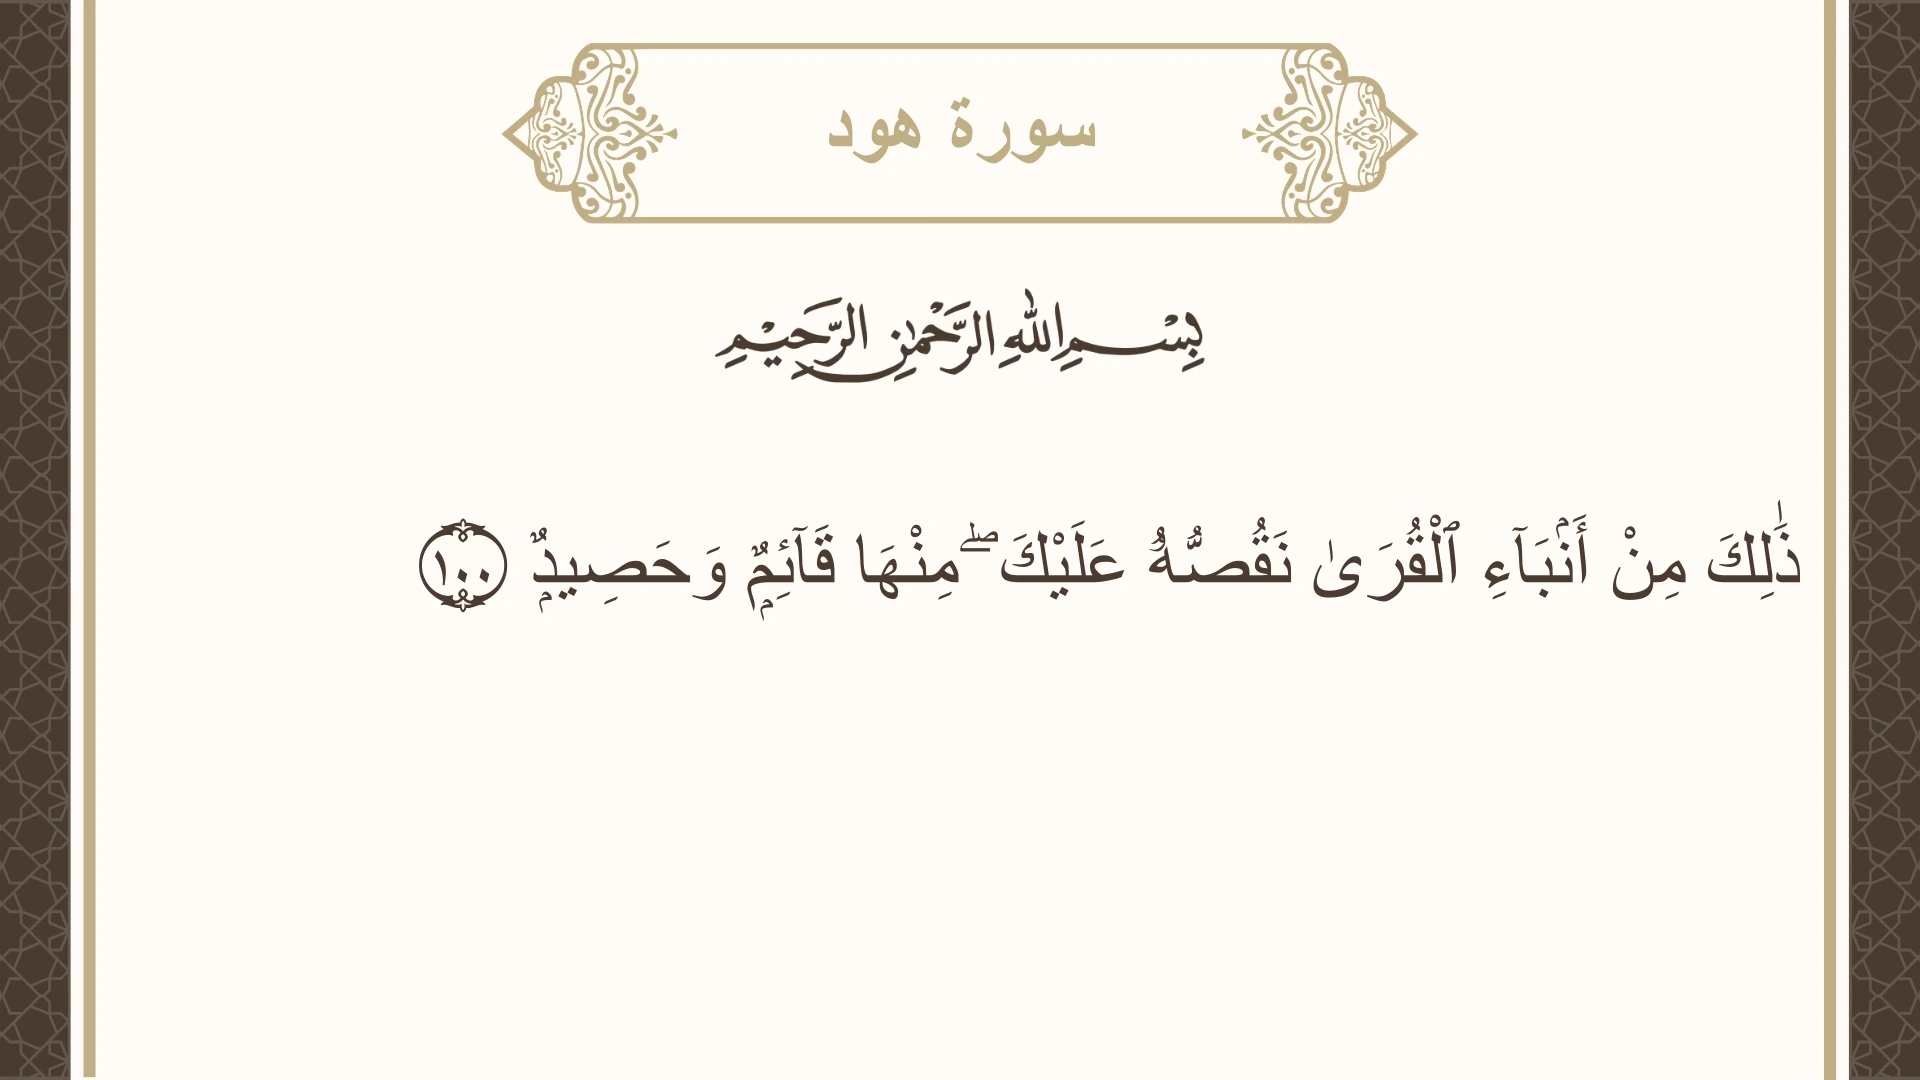 سورة هود
بِسْمِ اللهِ الرَّحْمٰنِ الرَّحِيْمِ
ذَٰلِكَ مِنْ أَنۢبَآءِ ٱلْقُرَىٰ نَقُصُّهُۥ عَلَيْكَ ۖ مِنْهَا قَآئِمٌۭ وَحَصِيدٌۭ ١٠٠